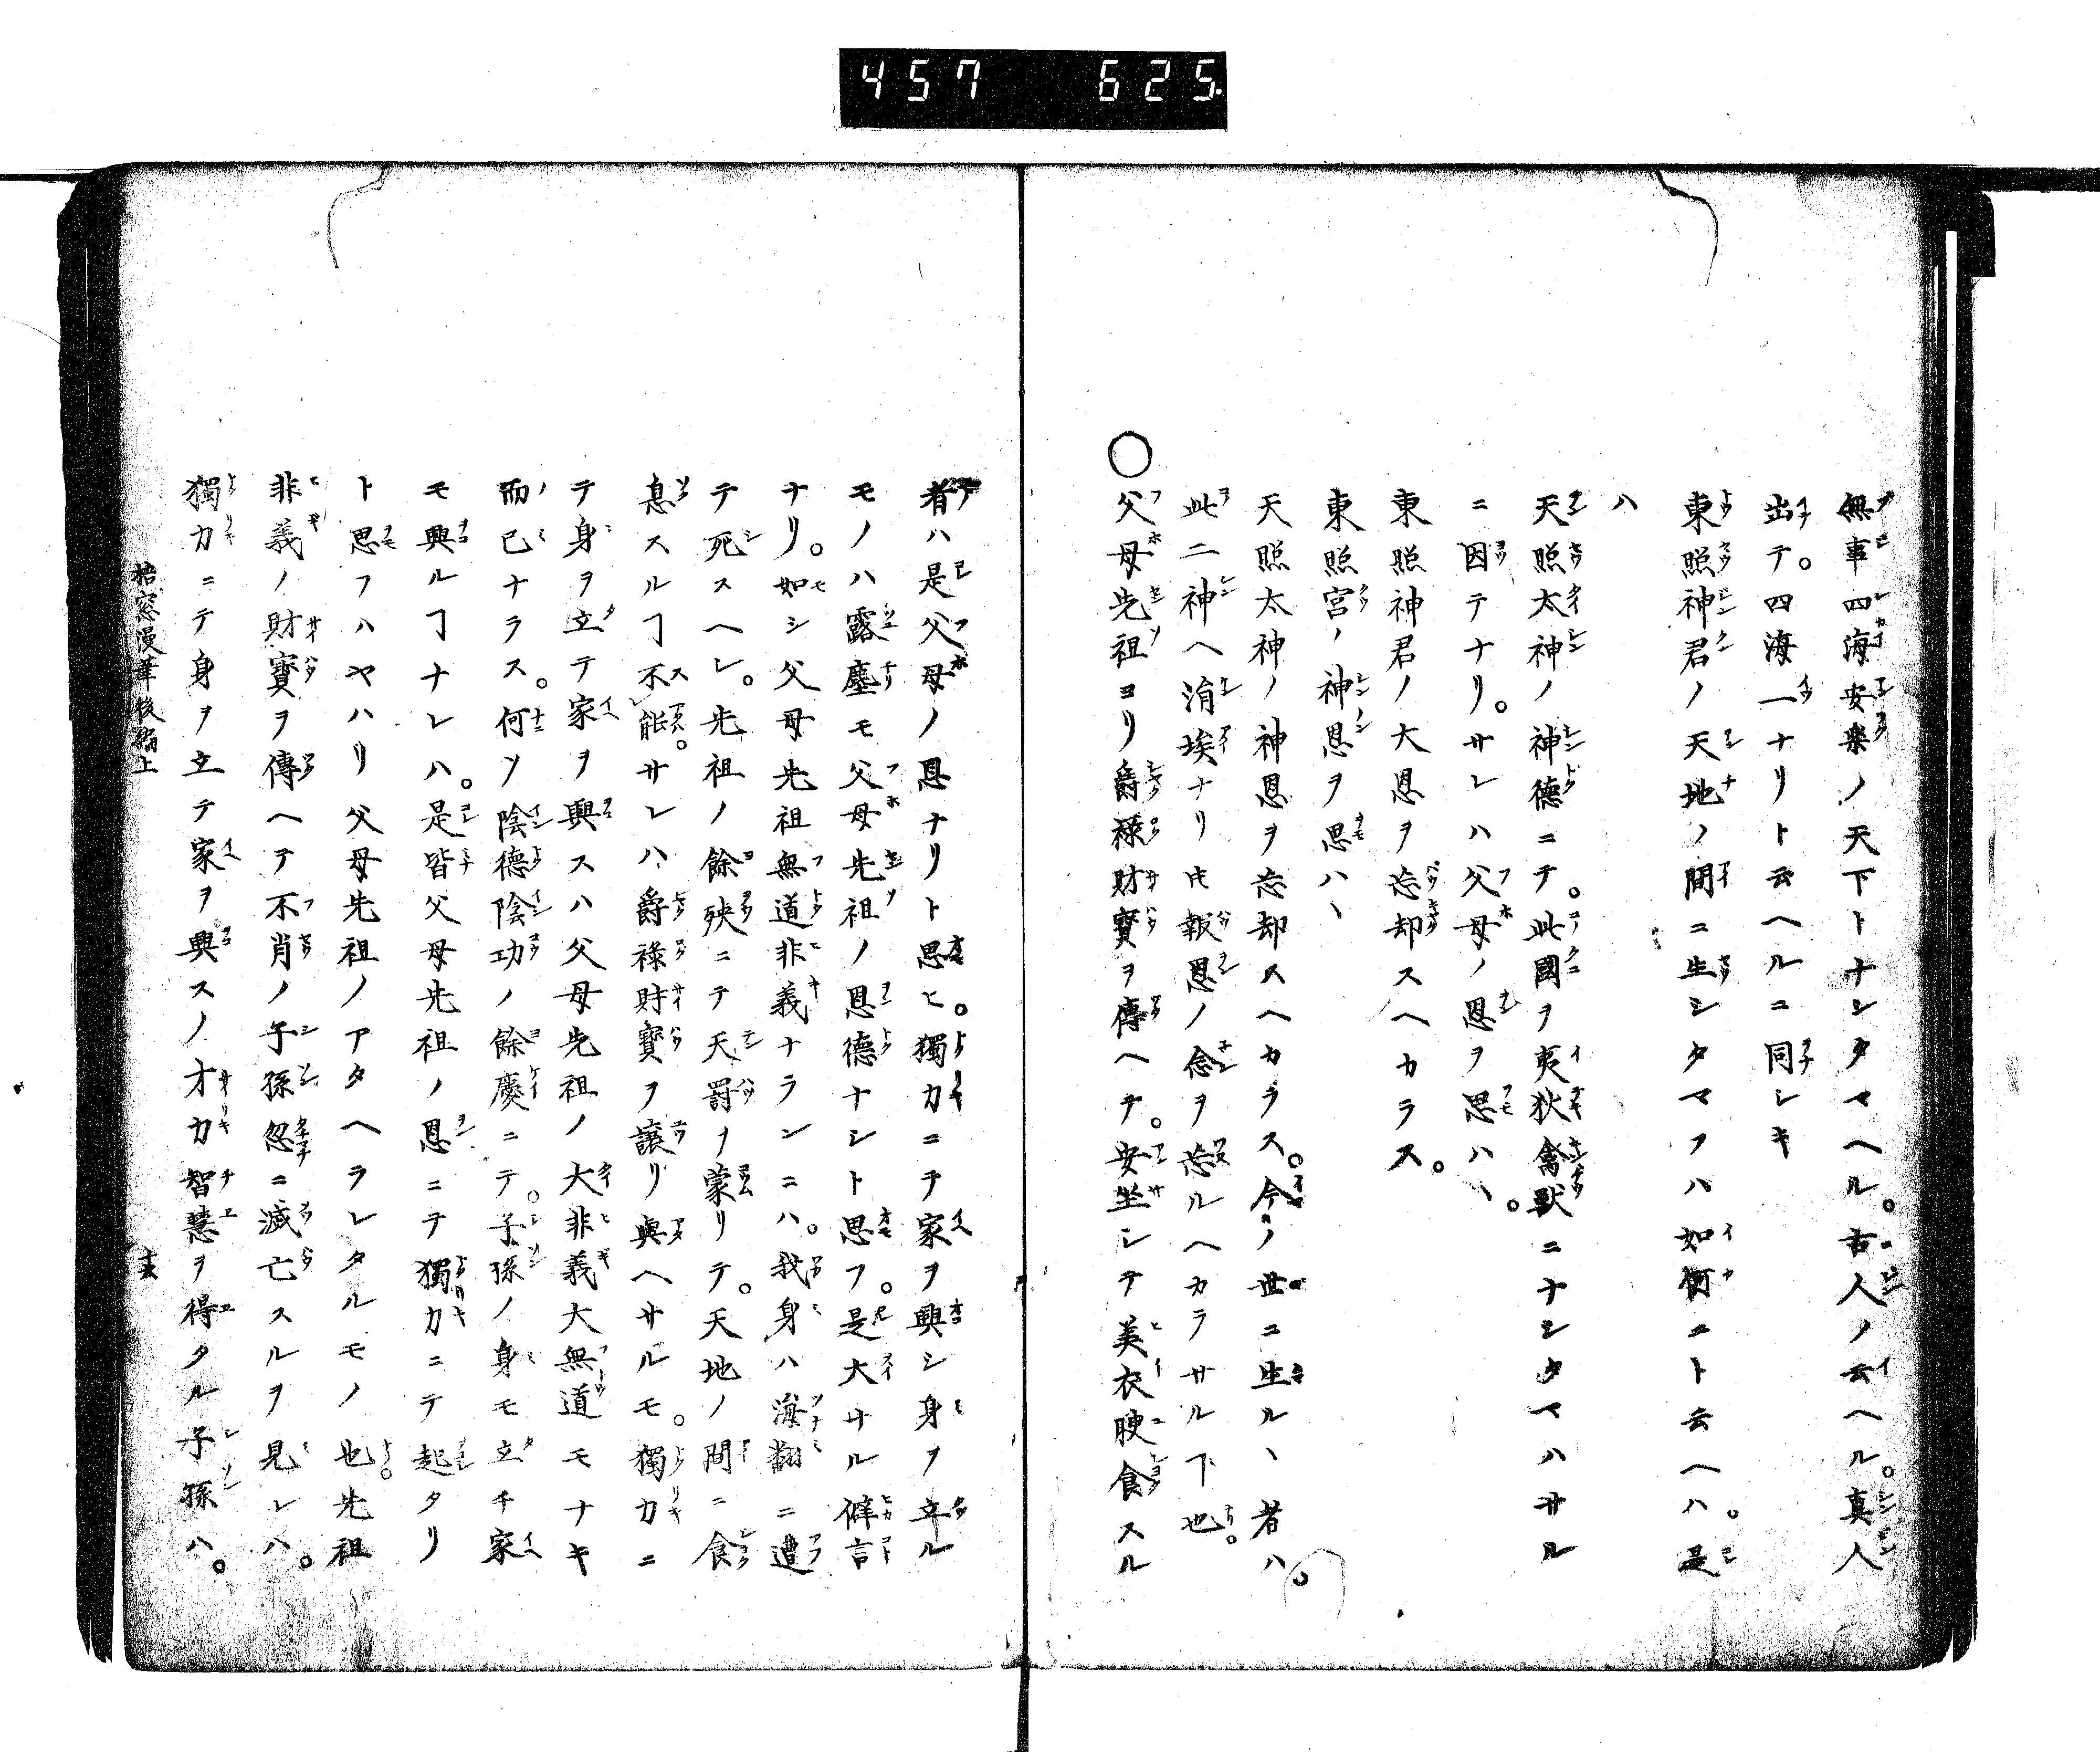 457 625
無事四海安楽ノ天下トナシタマヘル。古人ノ云ヘル。真人
出テ。四海一ナリト云ヘルニ同シキ
東照神君ノ天地ノ間ニ生シタマフハ如何ニト云ヘハ。是
ハ
天照太神ノ神德ニテ。此國ヲ夷狄禽獸ニナシタマハサル
ニ因テナリ。サレハ父母ノ恩ヲ思ハヽ。
東照神君ノ大恩ヲ忘却スヘカラス。
東照宮ノ神恩ヲ思ハヽ
天照太神ノ神恩ヲ忘却スヘカラス。今ノ世ニ生ルヽ者ハ。
此二神ヘ涓埃ナリ𪜈報恩ノ念ヲ忘ルヘカラサルヿ也。
○父母先祖ヨリ爵祿財寶ヲ傳ヘテ。安坐シテ美衣腴食スル
者ハ是父母ノ恩ナリト思ヒ。獨力ニテ家ヲ興シ身ヲ立ル
モノハ露塵モ父母先祖ノ恩德ナシト思フ。是大サル僻言
ナリ。如シ父母先祖無道非義ナランニハ。我身ハ海翻ニ遭
テ死スヘシ。先祖ノ餘殃ニテ天罰ヲ蒙リテ。天地ノ間ニ食
息スルヿ不能。サレハ爵祿財寶ヲ讓リ與ヘサルモ。獨力ニ
テ身ヲ立テ家ヲ興スハ父母先祖ノ大非義大無道モナキ
而已ナラス。何ソ陰德陰功ノ餘慶ニテ。子孫ノ身モ立チ家
モ興ルヿナレハ。是皆父母先祖ノ恩ニテ獨力ニテ起タリ
ト思フハヤハリ父母先祖ノアタヘラレタルモノ也。先祖
非義ノ財寶ヲ傳ヘテ不肖ノ子孫忽ニ滅亡スルヲ見レハ。
獨力ニテ身ヲ立テ家ヲ興スノ才力智慧ヲ得タル子孫ハ。
梧窓漫筆後編上